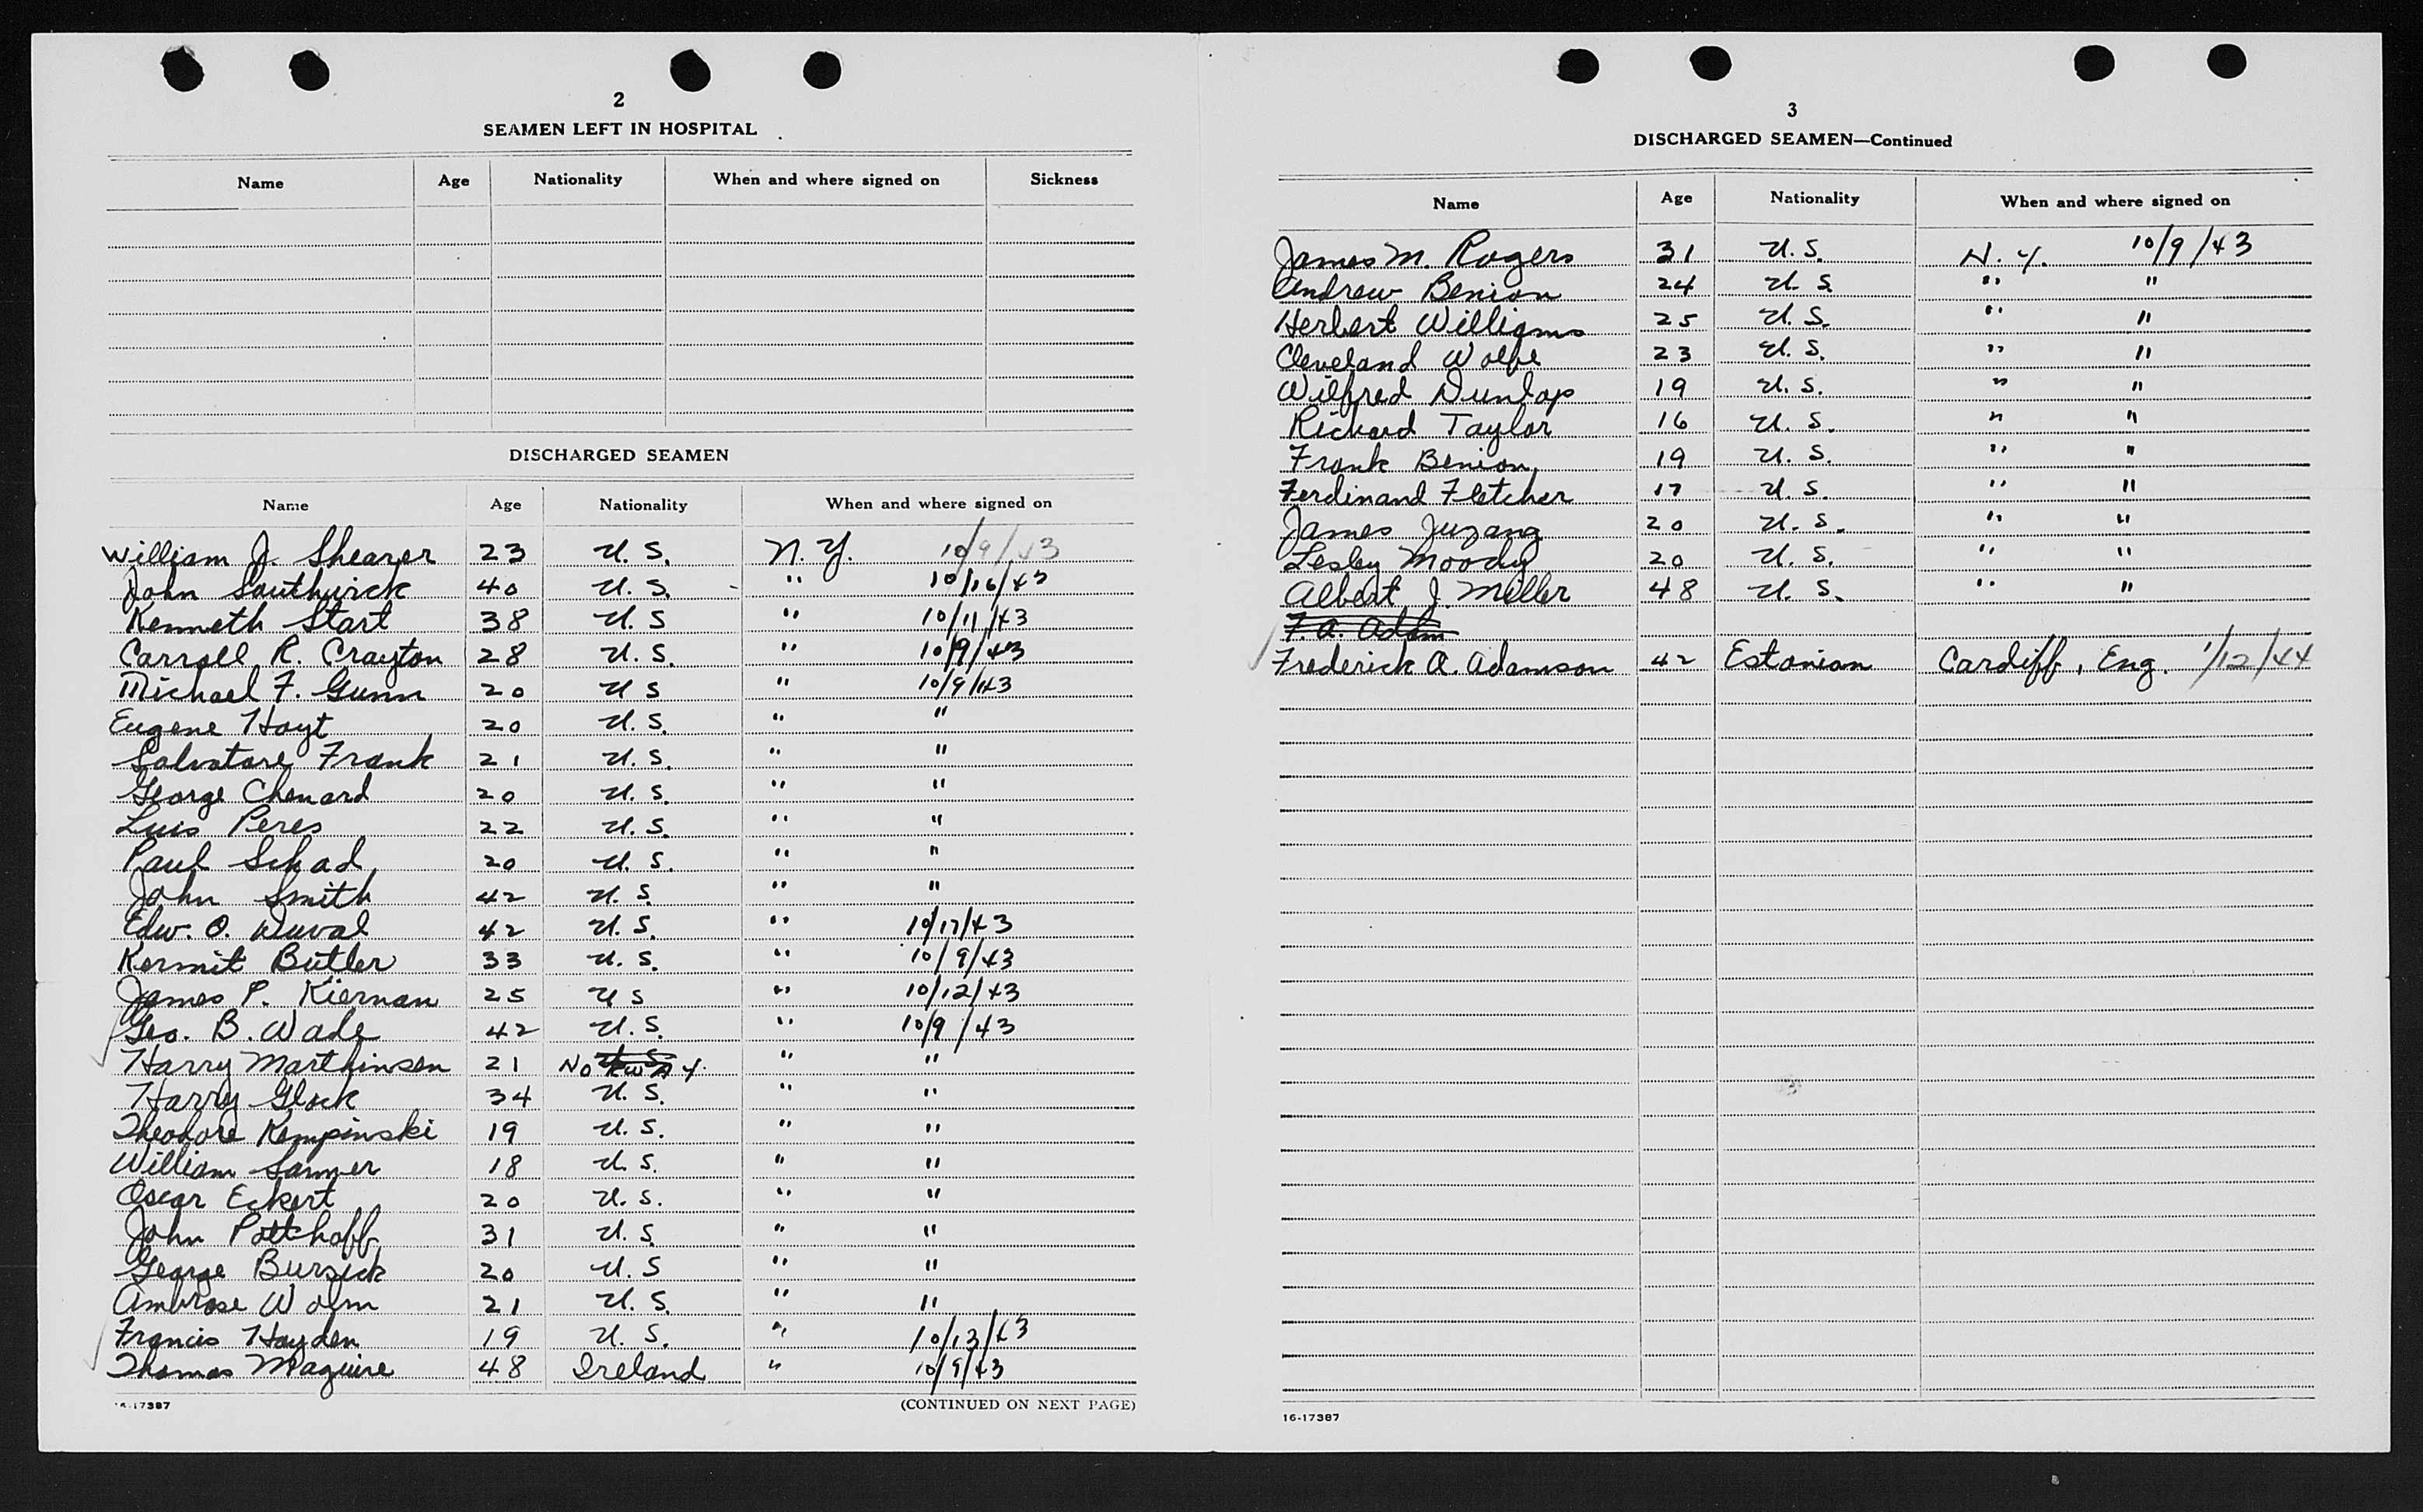 2
SEAMEN LEFT IN HOSPITAL
Name Age Nationality When and where signed on Sickness
DISCHARGED SEAMEN
Name Age Nationality When and where signed on
William J. Shearer 23 U. S. N. Y. 10/9/43
John Southwick 40 U. S. " 10/16/43
Kenneth Start 38 U. S " 10/11/43
Carroll R. Crayton 28 U. S. " 10/9/43
Michael F. Gunn 20 U S " 10/9/43
Eugene Hoyt 20 U. S. " "
Salvatore Frank 21 U. S. " "
George Chenard 20 U. S. " "
Luis Peres 22 U. S. " "
Paul Schad 20 U. S. " "
John Smith 42 U. S. " "
Edw. O. Duval 42 U. S. " 10/17/43
Kermit Butler 33 U. S. " 10/9/43
James P. Kiernan 25 U S " 10/12/43
Geo. B. Wade 42 U. S. " 10/9/43
Harry Marthinsen 21 Norway. " "
Harry Glock 34 U. S. " "
Theodore Kempinski 19 U. S. " "
William 18 U. S. " "
Oscar Eckert 20 U. S. " "
John Potthoff 31 U. S. " "
George Bursick 20 U. S " "
Ambrose Worm 21 U. S. " "
Francis Hayden 19 U. S. " 10/13/43
Thomas Maguire 48 Ireland " 10/9/43
16-17387 (CONTINUED ON NEXT PAGE)
3
DISCHARGED SEAMEN—Continued
Name Age Nationality When and where signed on
James M. Rogers 31 U. S. N. Y. 10/9/43
Andrew Benion 24 U. S. " "
Herbert Williams 25 U. S. " "
Cleveland Wolfe 23 U. S. " "
Wilfred Dunlap 19 U. S. " "
Richard Taylor 16 U. S. " "
Frank Benion 19 U. S. " "
Ferdinand Fletcher 17 U. S. " "
James Juzang 20 U. S. " "
Lesley Moody 20 U. S. " "
Albert J. Miller 48 U. S. " "
F. A. Adam
Frederick A. Adamson 42 Estonian Cardiff, Eng. 1/12/44
16-17387